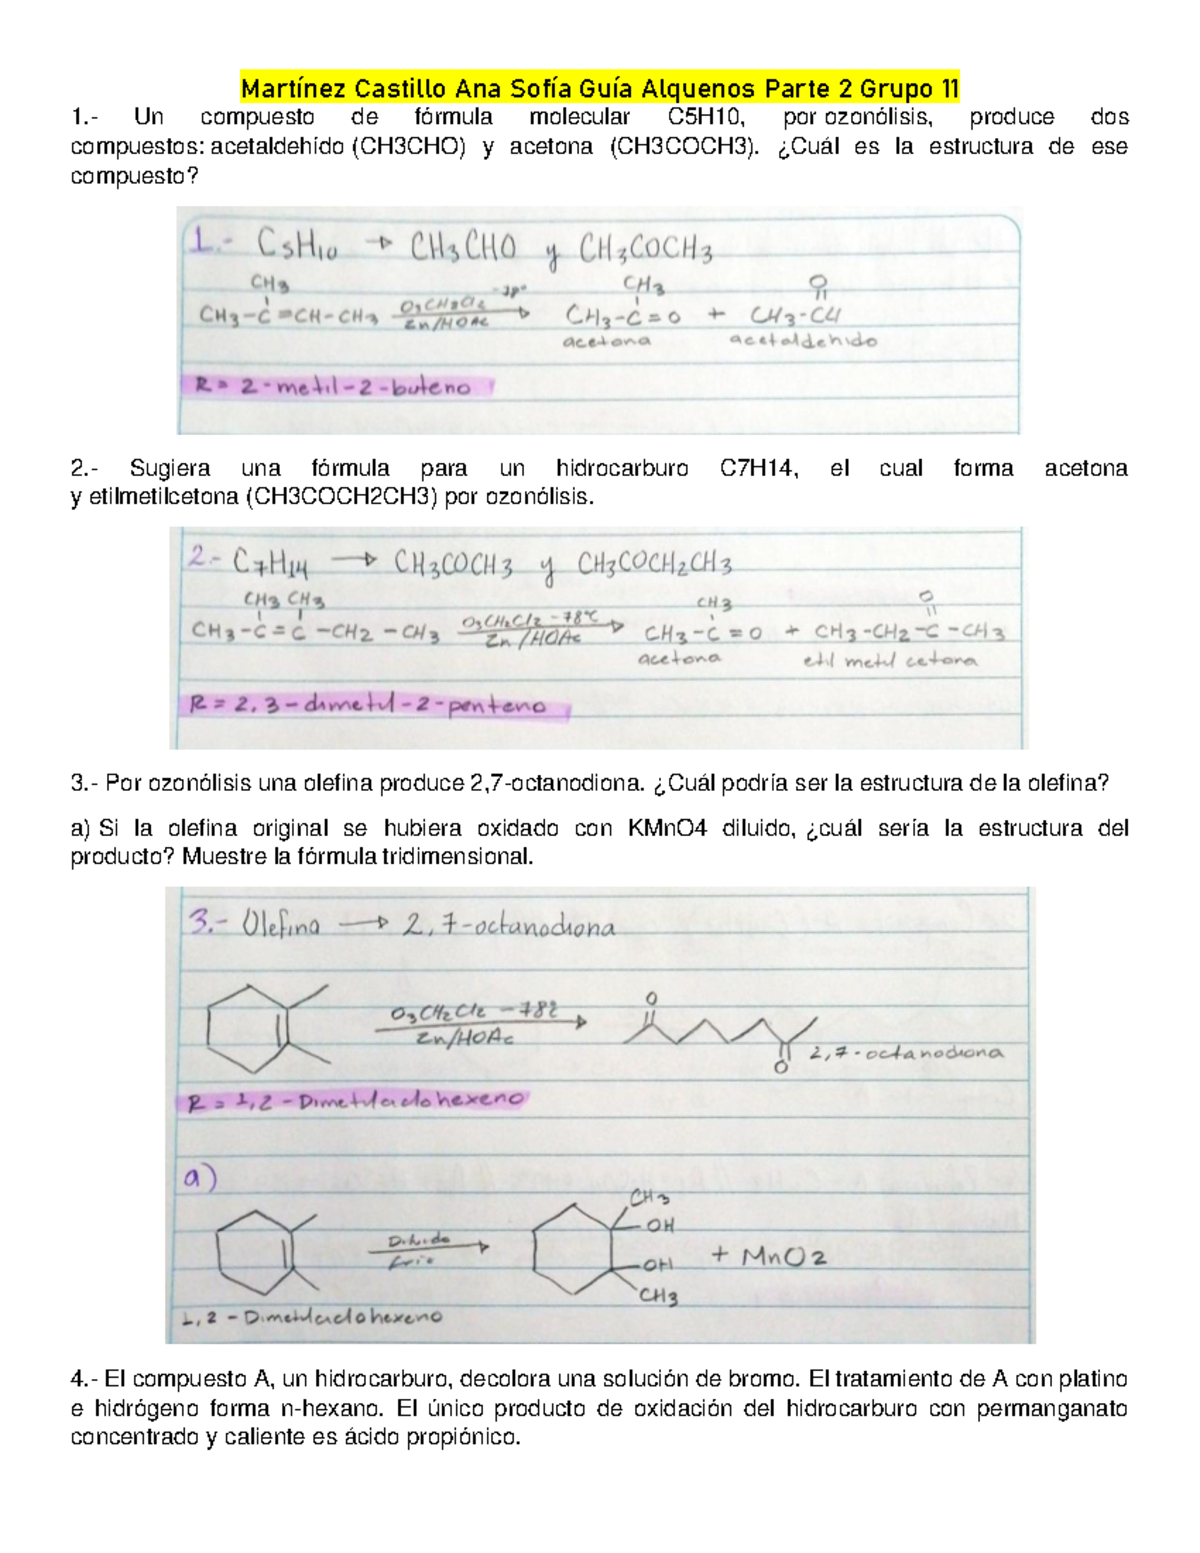 Martínez Castillo Ana Sofía Guía Alquenos Parte 2 Grupo 11
1.- Un compuesto de fórmula molecular C5H10, por ozonólisis, produce dos
compuestos: acetaldehído (CH3CHO) y acetona (CH3COCH3). ¿Cuál es la estructura de ese
compuesto?
1.- C5H10 → CH3CHO y CH3COCH3
CH3 CH3 O
CH3-C=CH-CH3 O3CH2Cl2 -78° Zn/HOAc CH3-C=O + CH3-CH
acetona acetaldehido
R= 2-metil-2-buteno
2.- Sugiera una fórmula para un hidrocarburo C7H14, el cual forma acetona
y etilmetilcetona (CH3COCH2CH3) por ozonólisis.
2.- C7H14 → CH3COCH3 y CH3COCH2CH3
CH3 CH3 CH3 O
CH3-C=C-CH2-CH3 O3CH2Cl2 -78°C Zn/HOAc CH3-C=O + CH3-CH2-C-CH3
acetona etil metil cetona
R= 2,3-dimetil-2-penteno
3.- Por ozonólisis una olefina produce 2,7-octanodiona. ¿Cuál podría ser la estructura de la olefina?
a) Si la olefina original se hubiera oxidado con KMnO4 diluido, ¿cuál sería la estructura del
producto? Muestre la fórmula tridimensional.
3.- Olefina → 2,7-octanodiona
O3CH2Cl2 -78° Zn/HOAc O O 2,7-octanodiona
R= 1,2-Dimetilciclohexeno
a)
Diluido frio CH3 OH OH CH3 + MnO2
1,2-Dimetilciclohexeno
4.- El compuesto A, un hidrocarburo, decolora una solución de bromo. El tratamiento de A con platino
e hidrógeno forma n-hexano. El único producto de oxidación del hidrocarburo con permanganato
concentrado y caliente es ácido propiónico.